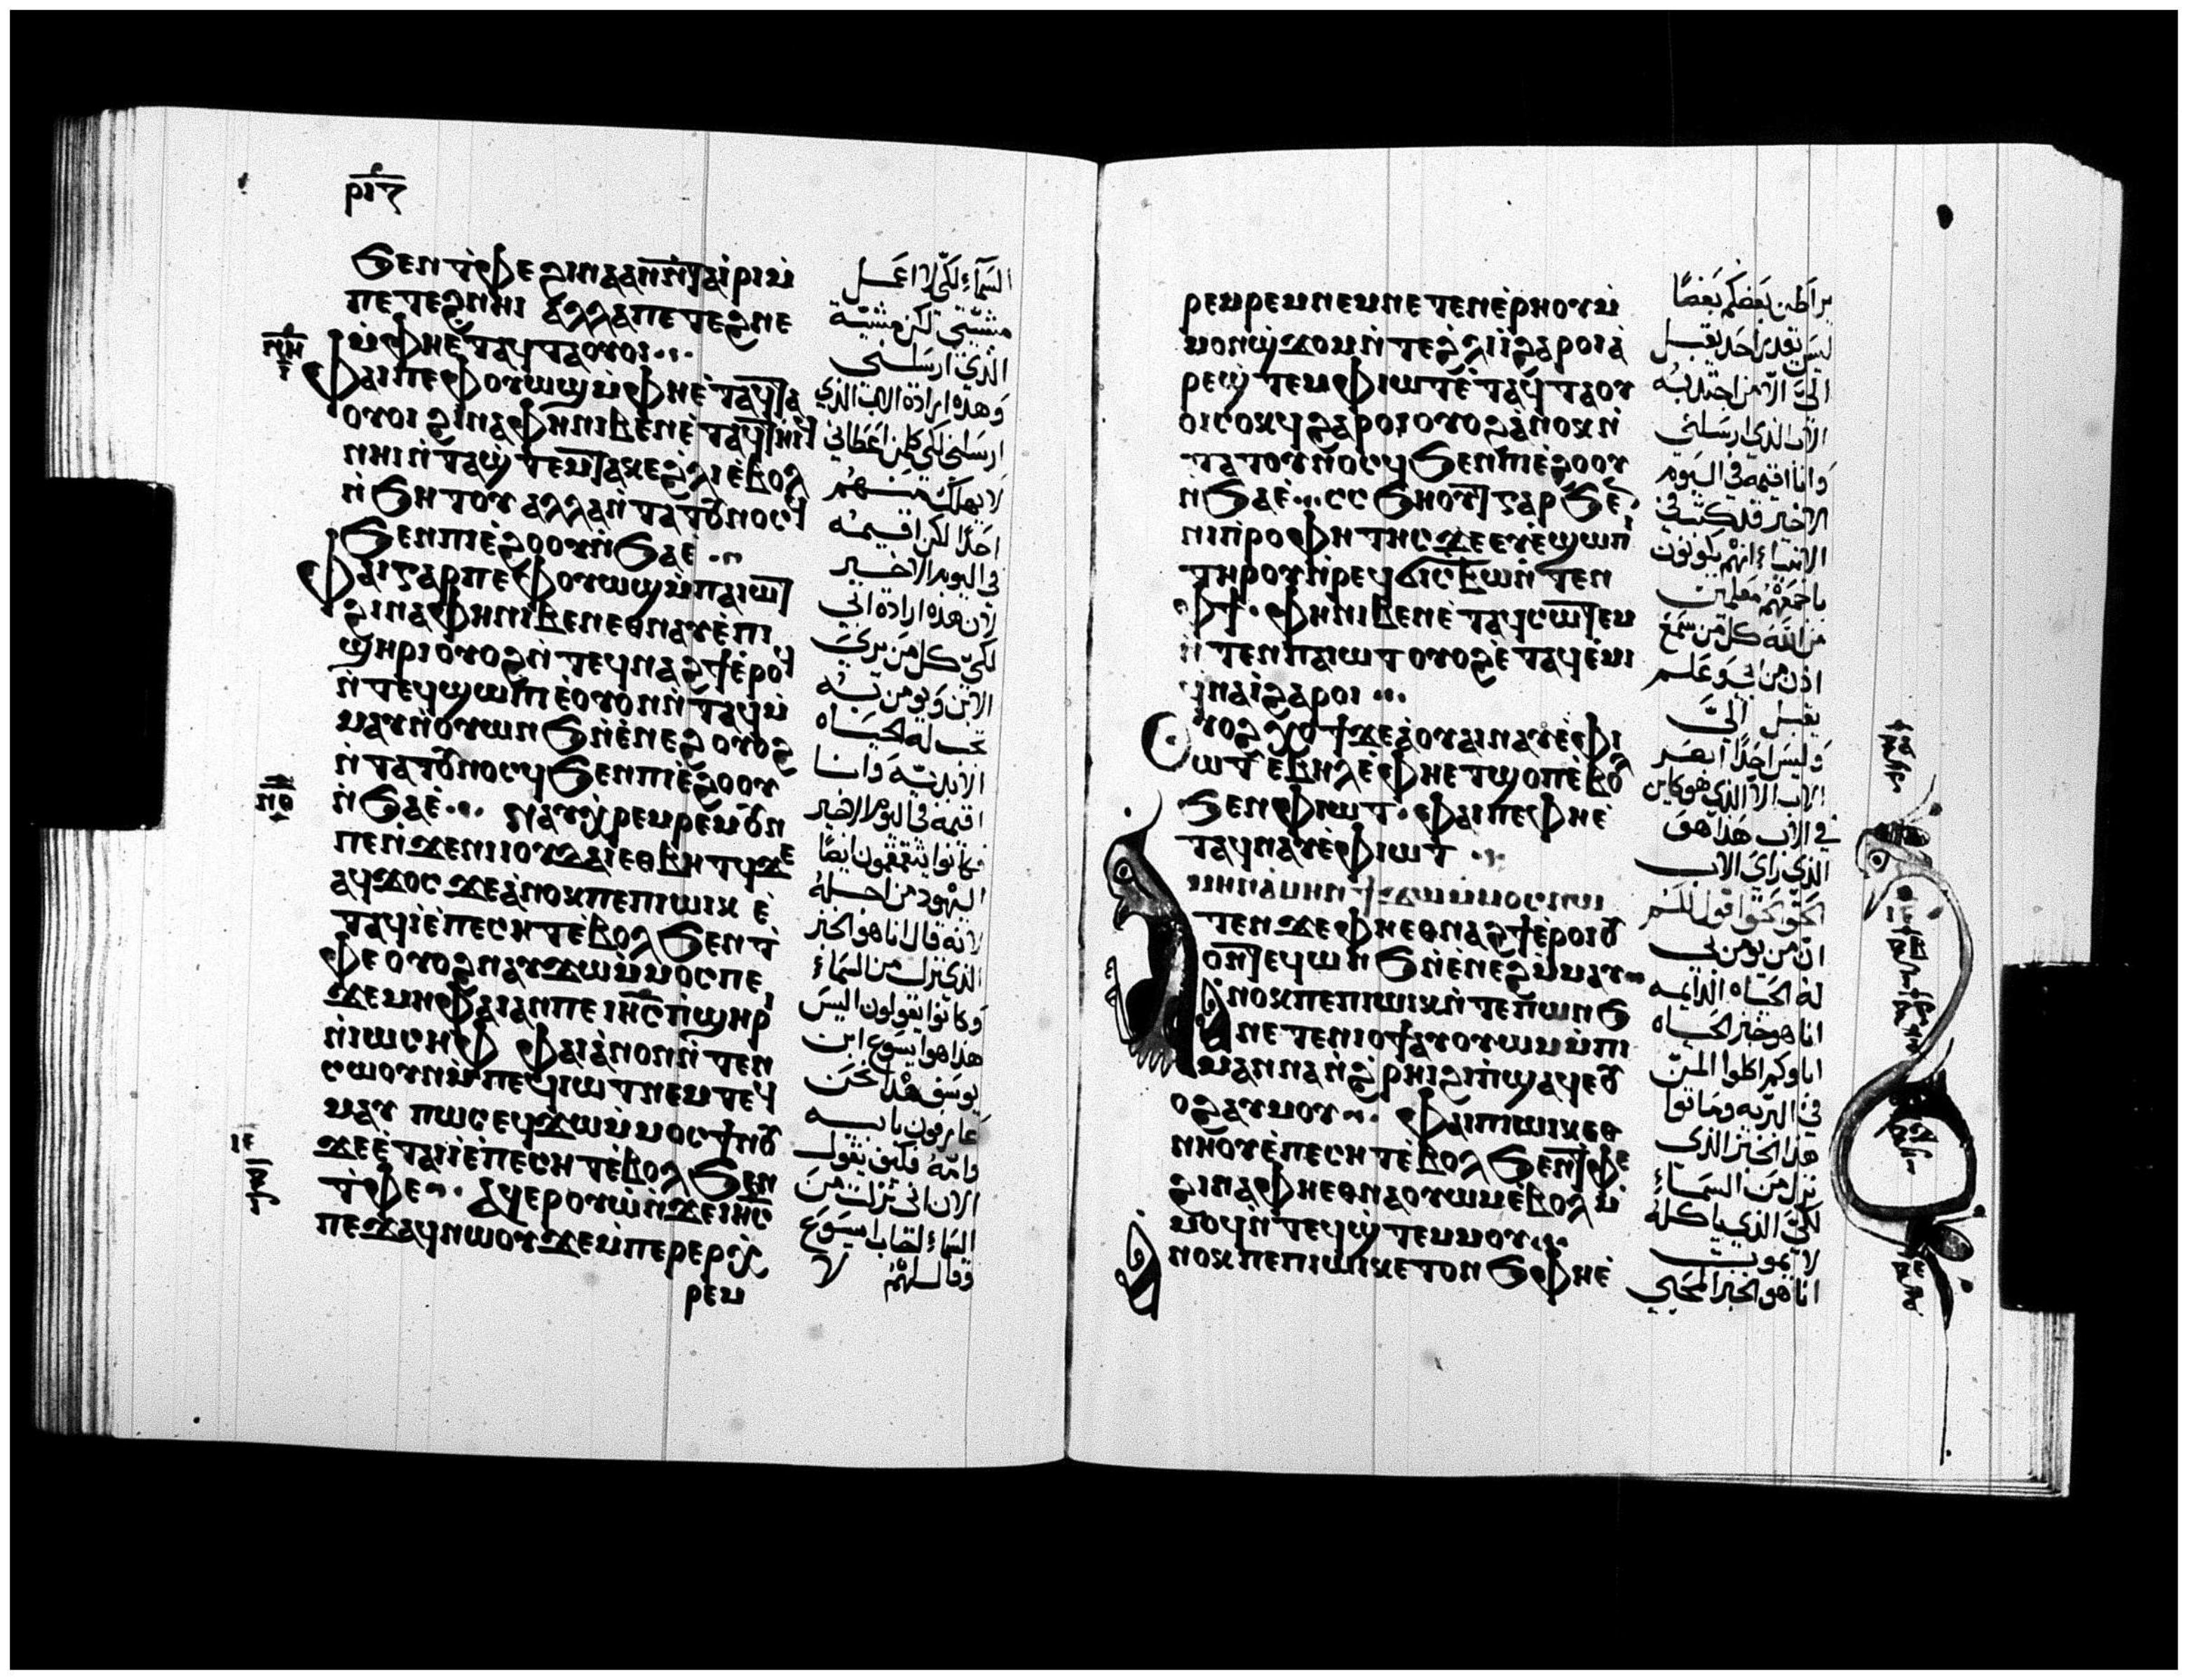 ⲣⲓⲍ
ϧⲉⲛ ⲧ̇ⲫⲉ ϩⲓⲛⲁ ⲁⲛ ⲛ̇ⲧⲁⲓ̇ⲣⲓ ⲙ̇
ⲡⲉⲧⲉϩⲛⲏⲓ ⲁⲗⲗⲁ ⲡⲉⲧⲉϩⲛⲉ
ⲙ̇ⲫⲏ ⲉ̇ⲧⲁϥⲧⲁⲟⲩⲟⲓ
ⲛⲏ
ⲫⲁⲓ ⲡⲉ ⲫⲟⲩⲱϣ ⲙ̇ⲫⲏ ⲉ̇ⲧⲁϥⲧⲁ
ⲟⲩⲟⲓ ϩⲓⲛⲁ ⲫⲏ ⲛⲓⲃⲉⲛ ⲉ̇ⲧⲁϥⲧⲏⲓϥ
ⲛⲏⲓ ⲛ̇ⲧⲁϣ̇ⲧⲉⲙⲧⲁⲕⲉ ϩ̇ⲗⲓ ⲉ̇ⲃⲟⲗ
ⲛ̇ϧⲏⲧⲟⲩ ⲁⲗⲗⲁ ⲛ̇ⲧⲁⲧⲟⲩⲛⲟⲥϥ
ϧⲉⲛ ⲡⲓⲉ̇ϩⲟⲟⲩ ⲛ̇ϧⲁⲉ̇
ⲫⲁⲓ ⲅⲁⲣ ⲡⲉ ⲫⲟⲩⲱϣ ⲙ̇ⲡⲁⲓⲱⲧ
ϩⲓⲛⲁ ⲫⲏ ⲛⲓⲃⲉⲛ ⲉⲑⲛⲁⲩ ⲉ̇ⲡⲓ
ϣⲏⲣⲓ ⲟⲩⲟϩ ⲛ̇ⲧⲉϥⲛⲁϩϯ ⲉ̇ⲣⲟϥ
ⲛ̇ⲧⲉϥϣⲱⲡⲓ ⲉ̇ⲟⲩⲟⲛ ⲛ̇ⲧⲁϥ ⲙ̇
ⲙⲁⲩ ⲛ̇ⲟⲩⲱⲛϧ ⲛ̇ⲉ̇ⲛⲉϩ ⲟⲩⲟϩ
ⲛ̇ⲧⲁⲧⲟⲩⲛⲟⲥϥ ϧⲉⲛ ⲡⲓⲉ̇ϩⲟⲟⲩ
ⲛⲑ
ⲛ̇ϧⲁⲉ̇ ⲛⲁⲩⲭ̇ⲣⲉⲙⲣⲉⲙ ⲟⲩⲛ
ⲡⲉ ⲛ̇ϫⲉ ⲛⲓⲓⲟⲩⲇⲁⲓ ⲉⲑⲃⲏⲧϥ ϫⲉ
ⲁϥϫⲟⲥ ϫⲉ ⲁ̇ⲛⲟⲕ ⲡⲉ ⲡⲓⲱⲓⲕ ⲉ̇
ⲧⲁϥⲓ̇ ⲉ̇ⲡⲉⲥⲏⲧ ⲉ̇ⲃⲟⲗ ϧⲉⲛ ⲧ̇
ⲫⲉ ⲟⲩⲟϩ ⲛⲁⲩϫⲱ ⲙ̇ⲙⲟⲥ ⲡⲉ
ϫⲉ ⲙⲏ ⲫⲁⲓ ⲁⲛ ⲡⲉ ⲓⲏⲥ ⲡ̇ϣⲏⲣⲓ
ⲛ̇ⲓⲱⲥⲏⲫ ⲫⲁⲓ ⲁ̇ⲛⲟⲛ ⲛ̇ⲧⲉⲛ
ⲥⲱⲟⲩⲛ ⲙ̇ⲡⲉϥⲓⲱⲧ ⲛⲉⲙ ⲧⲉϥ
ⲙⲁⲩ ⲡⲱⲥ ⲉϥϫⲱ ⲙ̇ⲙⲟⲥ ϯⲛⲟⲩ
ϫⲉ ⲉ̇ⲧⲁⲓⲓ̇ ⲉ̇ⲡⲉⲥⲏⲧ ⲉ̇ⲃⲟⲗ ϧⲉⲛ
ⲧ̇ⲫⲉ ⲁϥⲉⲣⲟⲩⲱ̇ ⲛ̇ϫⲉ ⲓⲏⲥ
ⲡⲉϫⲁϥ ⲛⲱⲟⲩ ϫⲉ ⲙ̇ⲡⲉⲣⲉⲣⲭ̇
ⲣⲉⲙ
السَّماءِ لكي لا اعمل
مشيّتي لكن مشيّة
الذي ارسلني
وهذه ارادة الاب الذي
ارسلني لكي كلمن اعطاني
لا يهلك منهم
احدًا لكن اقيمه
في اليوم الاخير
لان هذه ارادة ابي
لكي كل من يري
الابن ويومن به
تجب له الحياه
الابديّه وانا
اقيمه في اليوم الاخير
فكانوا يتقمقمون ايضًا
اليهود من اجله
لانه قال انا هو الخبز
الذي نزل من السماءِ
وكانوا يقولون اليس
هذا هو يسوع ابن
يوسف هذا نحن
عارفون بابيه
وامّه فكيف يقول
الان اني نزلت من
السماءِ اجاب يسوع
وقال لهم لا
ⲣⲉⲙⲣⲉⲙ ⲛⲉⲙ ⲛⲉⲧⲉⲛⲉ̇ⲣⲏⲟⲩ ⲙ̇
ⲙⲟⲛ ϣ̇ϫⲟⲙ ⲛ̇ⲧⲉ ϩ̇ⲗⲓ ⲓ̇ ϩⲁⲣⲟⲓ ⲁ̇
ⲣⲉϣ̇ⲧⲉⲙ ⲫⲓⲱⲧ ⲉ̇ⲧⲁϥⲧⲁⲟⲩ
ⲟⲓ ⲥⲟⲕϥ ϩⲁⲣⲟⲓ ⲟⲩⲟϩ ⲁ̇ⲛⲟⲕ ⲛ̇
ⲧⲁⲧⲟⲩⲛⲟⲥϥ ϧⲉⲛ ⲡⲓⲉ̇ϩⲟⲟⲩ
ⲛ̇ϧⲁⲉ̇ ⲥⲥϧⲏⲟⲩⲧ ⲅⲁⲣ ϧⲉⲛ
ⲛⲓⲡ̇ⲣⲟⲫⲏⲧⲏⲥ ϫⲉ ⲉⲩⲉ̇ϣⲱⲡⲓ
ⲧⲏⲣⲟⲩ ⲛ̇ⲣⲉϥϭⲓⲥⲃⲱ ⲛ̇ⲧⲉⲛ
ⲫϯ ⲫⲏ ⲛⲓⲃⲉⲛ ⲉ̇ⲧⲁϥⲥⲱⲧⲉⲙ
ⲛ̇ⲧⲉⲛ ⲡⲁⲓⲱⲧ ⲟⲩⲟϩ ⲉ̇ⲧⲁϥⲉ̇ⲙⲓ
ϥ̇ⲛⲁⲓ̇ ϩⲁⲣⲟⲓ
ⲟⲩⲟϩ ϫⲉ ⲁ̇ⲟⲩⲁⲓ ⲛⲁⲩ ⲉ̇ⲫⲓ
ⲱⲧ ⲉⲃⲏⲗ ⲉ̇ⲫⲏ ⲉⲧϣⲟⲡ ⲉ̇ⲃⲟⲗ
ϧⲉⲛ ⲫⲓⲱⲧ ⲫⲁⲓ ⲡⲉ ⲫⲏ ⲉ̇
ⲧⲁϥⲛⲁⲩ ⲉ̇ⲫⲓⲱⲧ
ⲁⲙⲏⲛ ⲁⲙⲏⲛ ϯϫⲱ ⲙ̇ⲙⲟⲥ ⲛⲱ
ⲧⲉⲛ ϫⲉ ⲫⲏ ⲉⲑⲛⲁϩϯ ⲉ̇ⲣⲟⲓ ⲟⲩ
ⲟⲛⲧⲉϥ ⲱⲛϧ ⲛ̇ⲉ̇ⲛⲉϩ ⲙ̇ⲙⲁⲩ
ⲁⲛⲟⲕ ⲡⲉ ⲡⲓⲱⲓⲕ ⲛ̇ⲧⲉ ⲡ̇ⲱⲛϧ
ⲛⲉⲧⲉⲛⲓⲟϯ ⲁⲩⲟⲩⲱⲙ ⲙ̇ⲡⲓ
ⲙⲁⲛⲛⲁ ⲛ̇ϩ̇ⲣⲏⲓ ϩⲓ ⲡ̇ϣⲁϥⲉ ⲟⲩ
ⲟϩ ⲁⲩⲙⲟⲩ ⲫⲁⲓ ⲡⲓⲱⲓⲕ ⲉⲑ
ⲛⲏⲟⲩ ⲉ̇ⲡⲉⲥⲏⲧ ⲉ̇ⲃⲟⲗ ϧⲉⲛ ⲧⲫⲉ
ϩⲓⲛⲁ ⲫⲏ ⲉⲑⲛⲁⲟⲩⲱⲙ ⲉⲃⲟⲗ ⲙ̇
ⲙⲟϥ ⲛ̇ⲧⲉϥϣ̇ⲧⲉⲙⲙⲟⲩ
ⲁⲛⲟⲕ ⲡⲉ ⲡⲓⲱⲓⲕ ⲉⲧⲟⲛϧ ⲫⲏ ⲉ̇
بعضكم بعضًا
ليس يقدر احد يقبل
اليّ الا من اجتذبه
الاب الذي ارسلني
وانا اقيمه في اليوم
الاخير قد كتب في
الانبياءِ انهم يكونون
باجمعهم معلمين
من الله كل من سمع
اذن من ابي وعلم
يقبل اليَّ
وليس احدًا ابصر
الاب الا الذي هو كاين
في الاب هذا هو
الذي راي الاب
الحق الحق اقول لكم
ان من يومن بي
له الحياه الدايمه
انا هو خبز الحياه
اباوكم اكلوا المنّ
في البريه وماتوا
هذا الخبز الذي
نزل من السماءِ
لكي الذي ياكله
لا يموت
انا هو الخبز المحيي